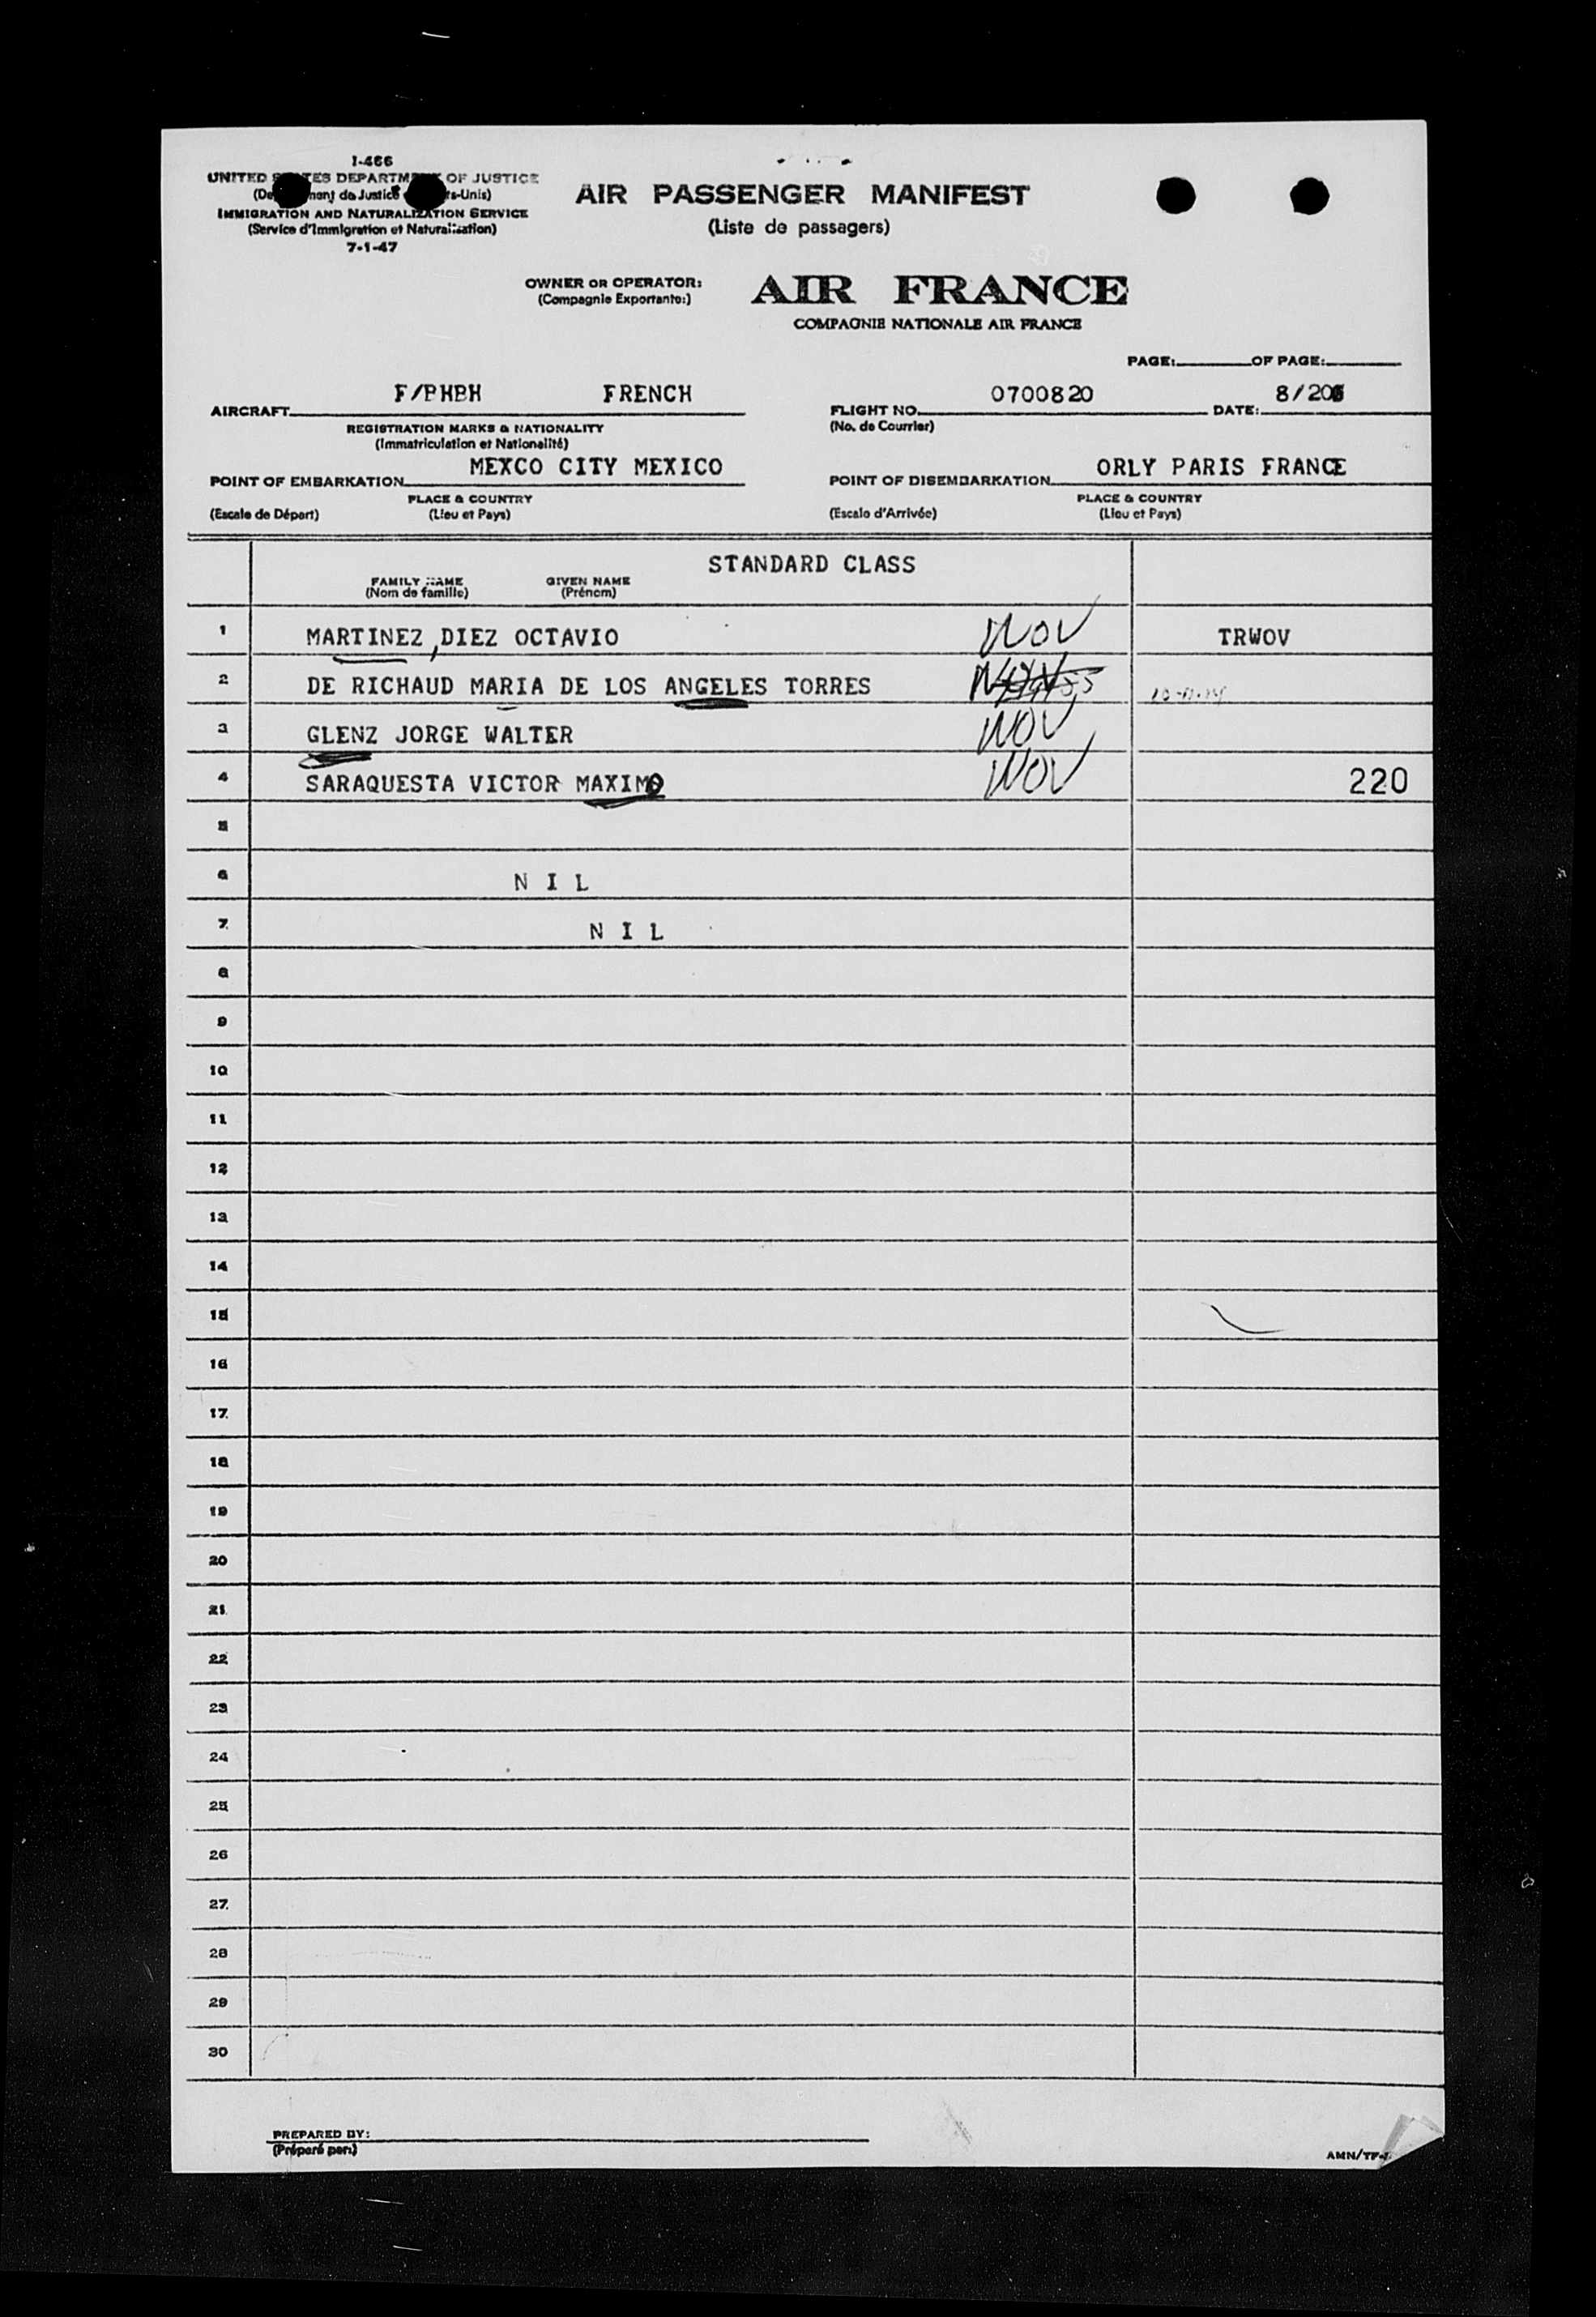 I-466
UNITED STATES DEPARTMENT OF JUSTICE
IMMIGRATION AND NATURALIZATION SERVICE
(Service d'Immigration et Naturalisation)
7-1-47
AIR PASSENGER MANIFEST
(Liste de passagers)
OWNER OR OPERATOR:
(Compagnie Exportante:)
AIR FRANCE
COMPAGNIE NATIONALE AIR FRANCE
PAGE: OF PAGE:
AIRCRAFT F/BHBH FRENCH
REGISTRATION MARKS & NATIONALITY
(Immatriculation et Nationalité)
FLIGHT NO. 0700820 DATE: 8/20
(No. de Courrier)
POINT OF EMBARKATION MEXCO CITY MEXICO
PLACE & COUNTRY
(Escale de Départ) (Lieu et Pays)
POINT OF DISEMBARKATION ORLY PARIS FRANCE
PLACE & COUNTRY
(Escale d'Arrivée) (Lieu et Pays)
STANDARD CLASS
FAMILY NAME GIVEN NAME
(Nom de famille) (Prénom)
1 MARTINEZ,DIEZ OCTAVIO WOV TRWOV
2 DE RICHAUD MARIA DE LOS ANGELES TORRES
3 GLENZ JORGE WALTER WOV
4 SARAQUESTA VICTOR MAXIMO WOV 220
5
6 N I L
7 N I L
8
9
10
11
12
13
14
15
16
17
18
19
20
21
22
23
24
25
26
27
28
29
30
PREPARED BY:
(Préparé par:)